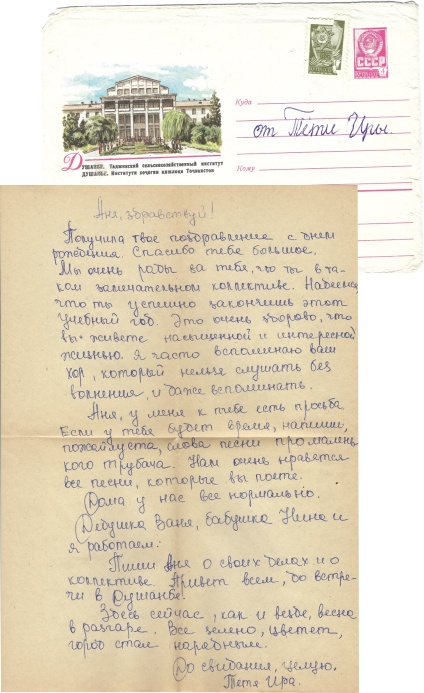 СССР
Куда
от Тети Иры.
Кому
ДУШАНБЕ. Таджикский сельскохозяйственный институт
ДУШАНБЕ. Институти хочагии қишлоқи Тоҷикистон
Аня, здравствуй!
Получила твое поздравление с днем
рождения. Спасибо тебе большое.
Мы очень рады за тебя, что ты в та-
ком замечательном коллективе. Надеемся,
что ты успешно закончишь этот
учебный год. Это очень здорово, что
вы живете насыщенной и интересной
жизнью. Я часто вспоминаю ваш
хор, который нельзя слушать без
волнения, и даже вспоминать.
Аня, у меня к тебе есть просьба.
Если у тебя будет время, напиши,
пожайлуста, слова песни про малень
кого трубача. Нам очень нравятся
все песни, которые вы поете.
Дома у нас все нормально.
Дедушка Ваня, бабушка Нина и
я работаем.
Пиши Аня о своих делах и о
коллективе. Привет всем, до встре-
чи в Душанбе!
Здесь сейчас, как и везде, весна
в разгаре. Все зелено, цветет,
город стал нарядным.
До свидания, целую.
Тетя Ира.